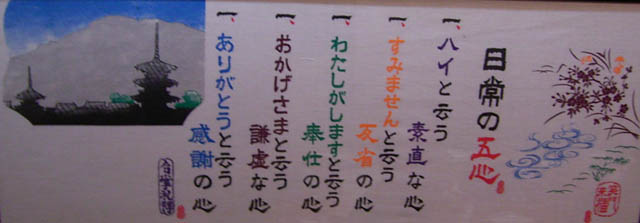 日常の五心
一、ハイと云う素直な心
一、すみませんと云う反省の心
一、わたしがしますと云う奉仕の心
一、おかげさまと云う謙虚な心
一、ありがとうと云う感謝の心